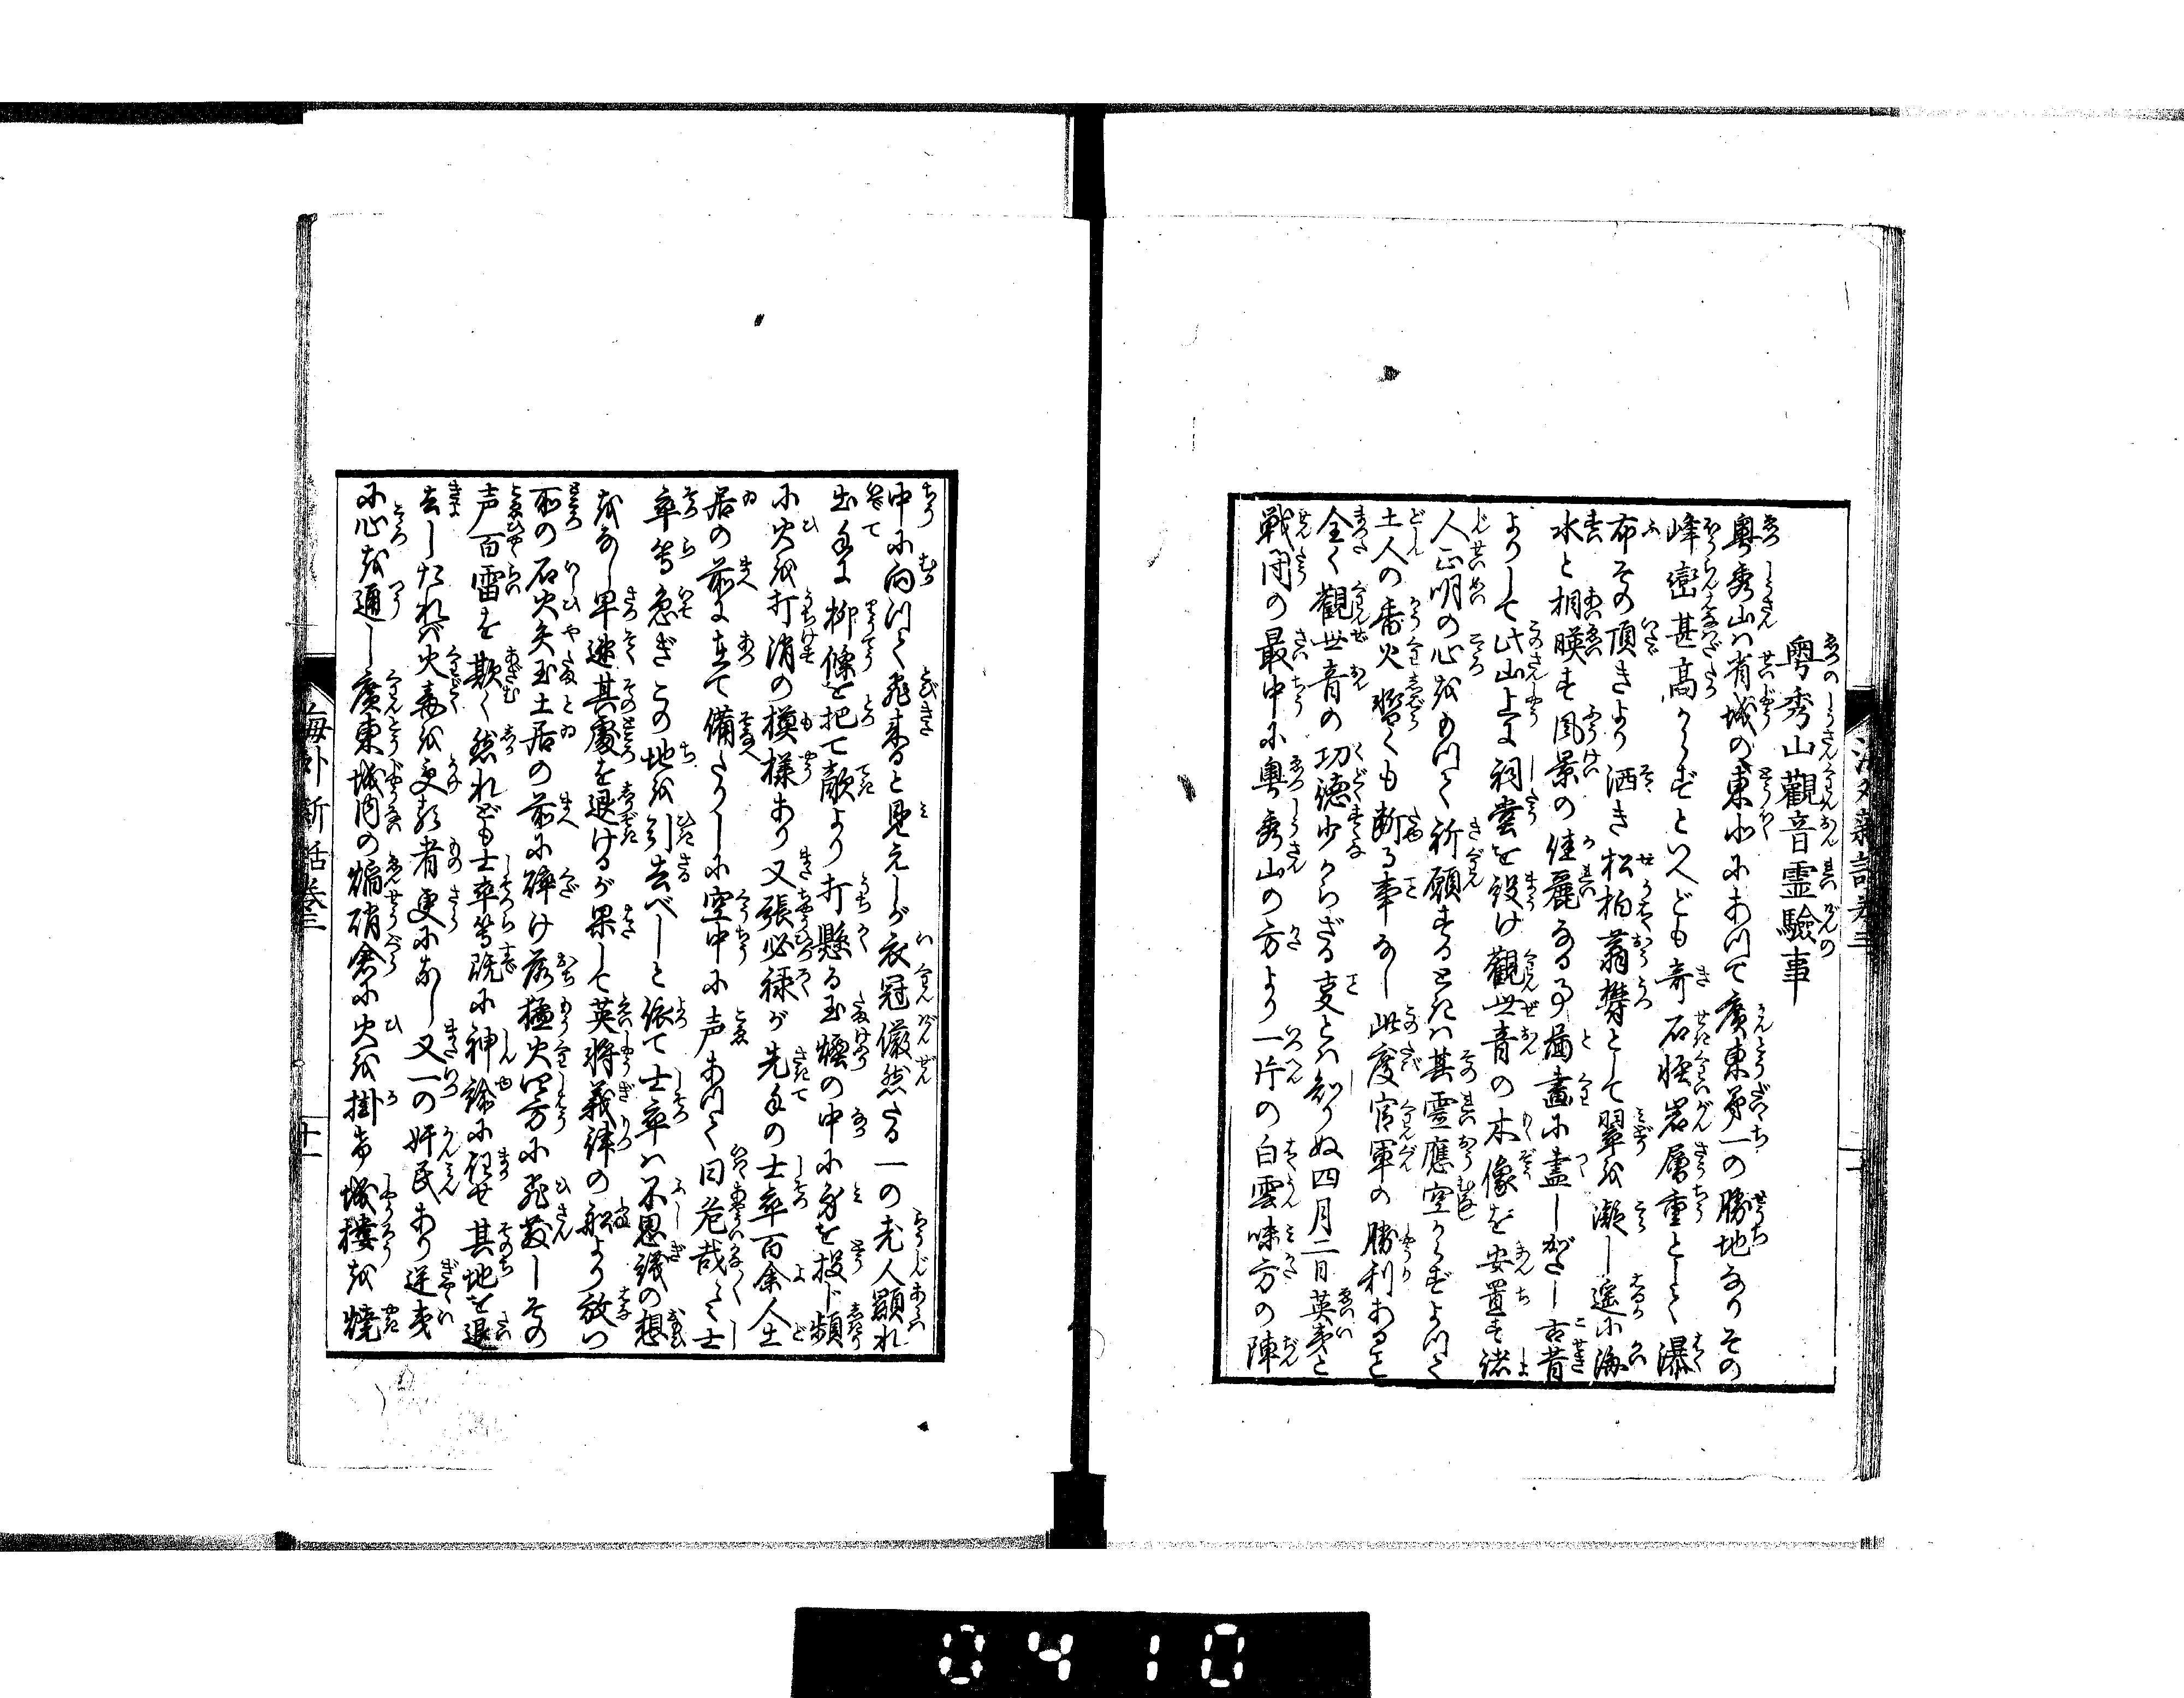 粤秀山觀音霊驗事
粤秀山ハ省城の東北にあつて廣東第一の勝地なりその
峰巒甚高からずといへども奇石怪岩層重として瀑
布その頂きより洒き松柏蓊欝として翠を凝し遥に海
水と相暎ず風景の佳麗なる事畵圖に盡しがたし古昔
よりして此山上に祠堂を設け觀世音の木像を安置す諸
人正明の心をもつて祈願するときハ其霊應空からずよつて
土人の香火暫くも断る事なし此度官軍の勝利あること
全く觀世音の功徳少からざる事とハ知りぬ四月二日英夷と
戦闘の最中に粤秀山の方より一片の白雲味方の陣
中に向つて飛来ると見えしが衣冠儼然たる一の老人顕れ
出手に柳條を把て敵より打懸る玉煙の中に身を投じ頻
に火を打消の模様あり又張必禄が先手の士卒百余人土
居の前に在て備たりしに空中に声あつて曰危哉々々士
卒等急ぎこの地を引去べしと依て士卒ハ不思議の想
をなし早速其處を退けるが果して英将義律の船より放つ
所の石火矢玉土居の前に碎け落猛火四方に飛散しその
声百雷を欺く然れども士卒等既に神諭に任せ其地を退
去したれバ火毒を受る者更になし又一の奸民あり逆夷
に心を通し廣東城内の焔硝倉に火を掛け城樓を燒
海外新話巻三
十一
0410